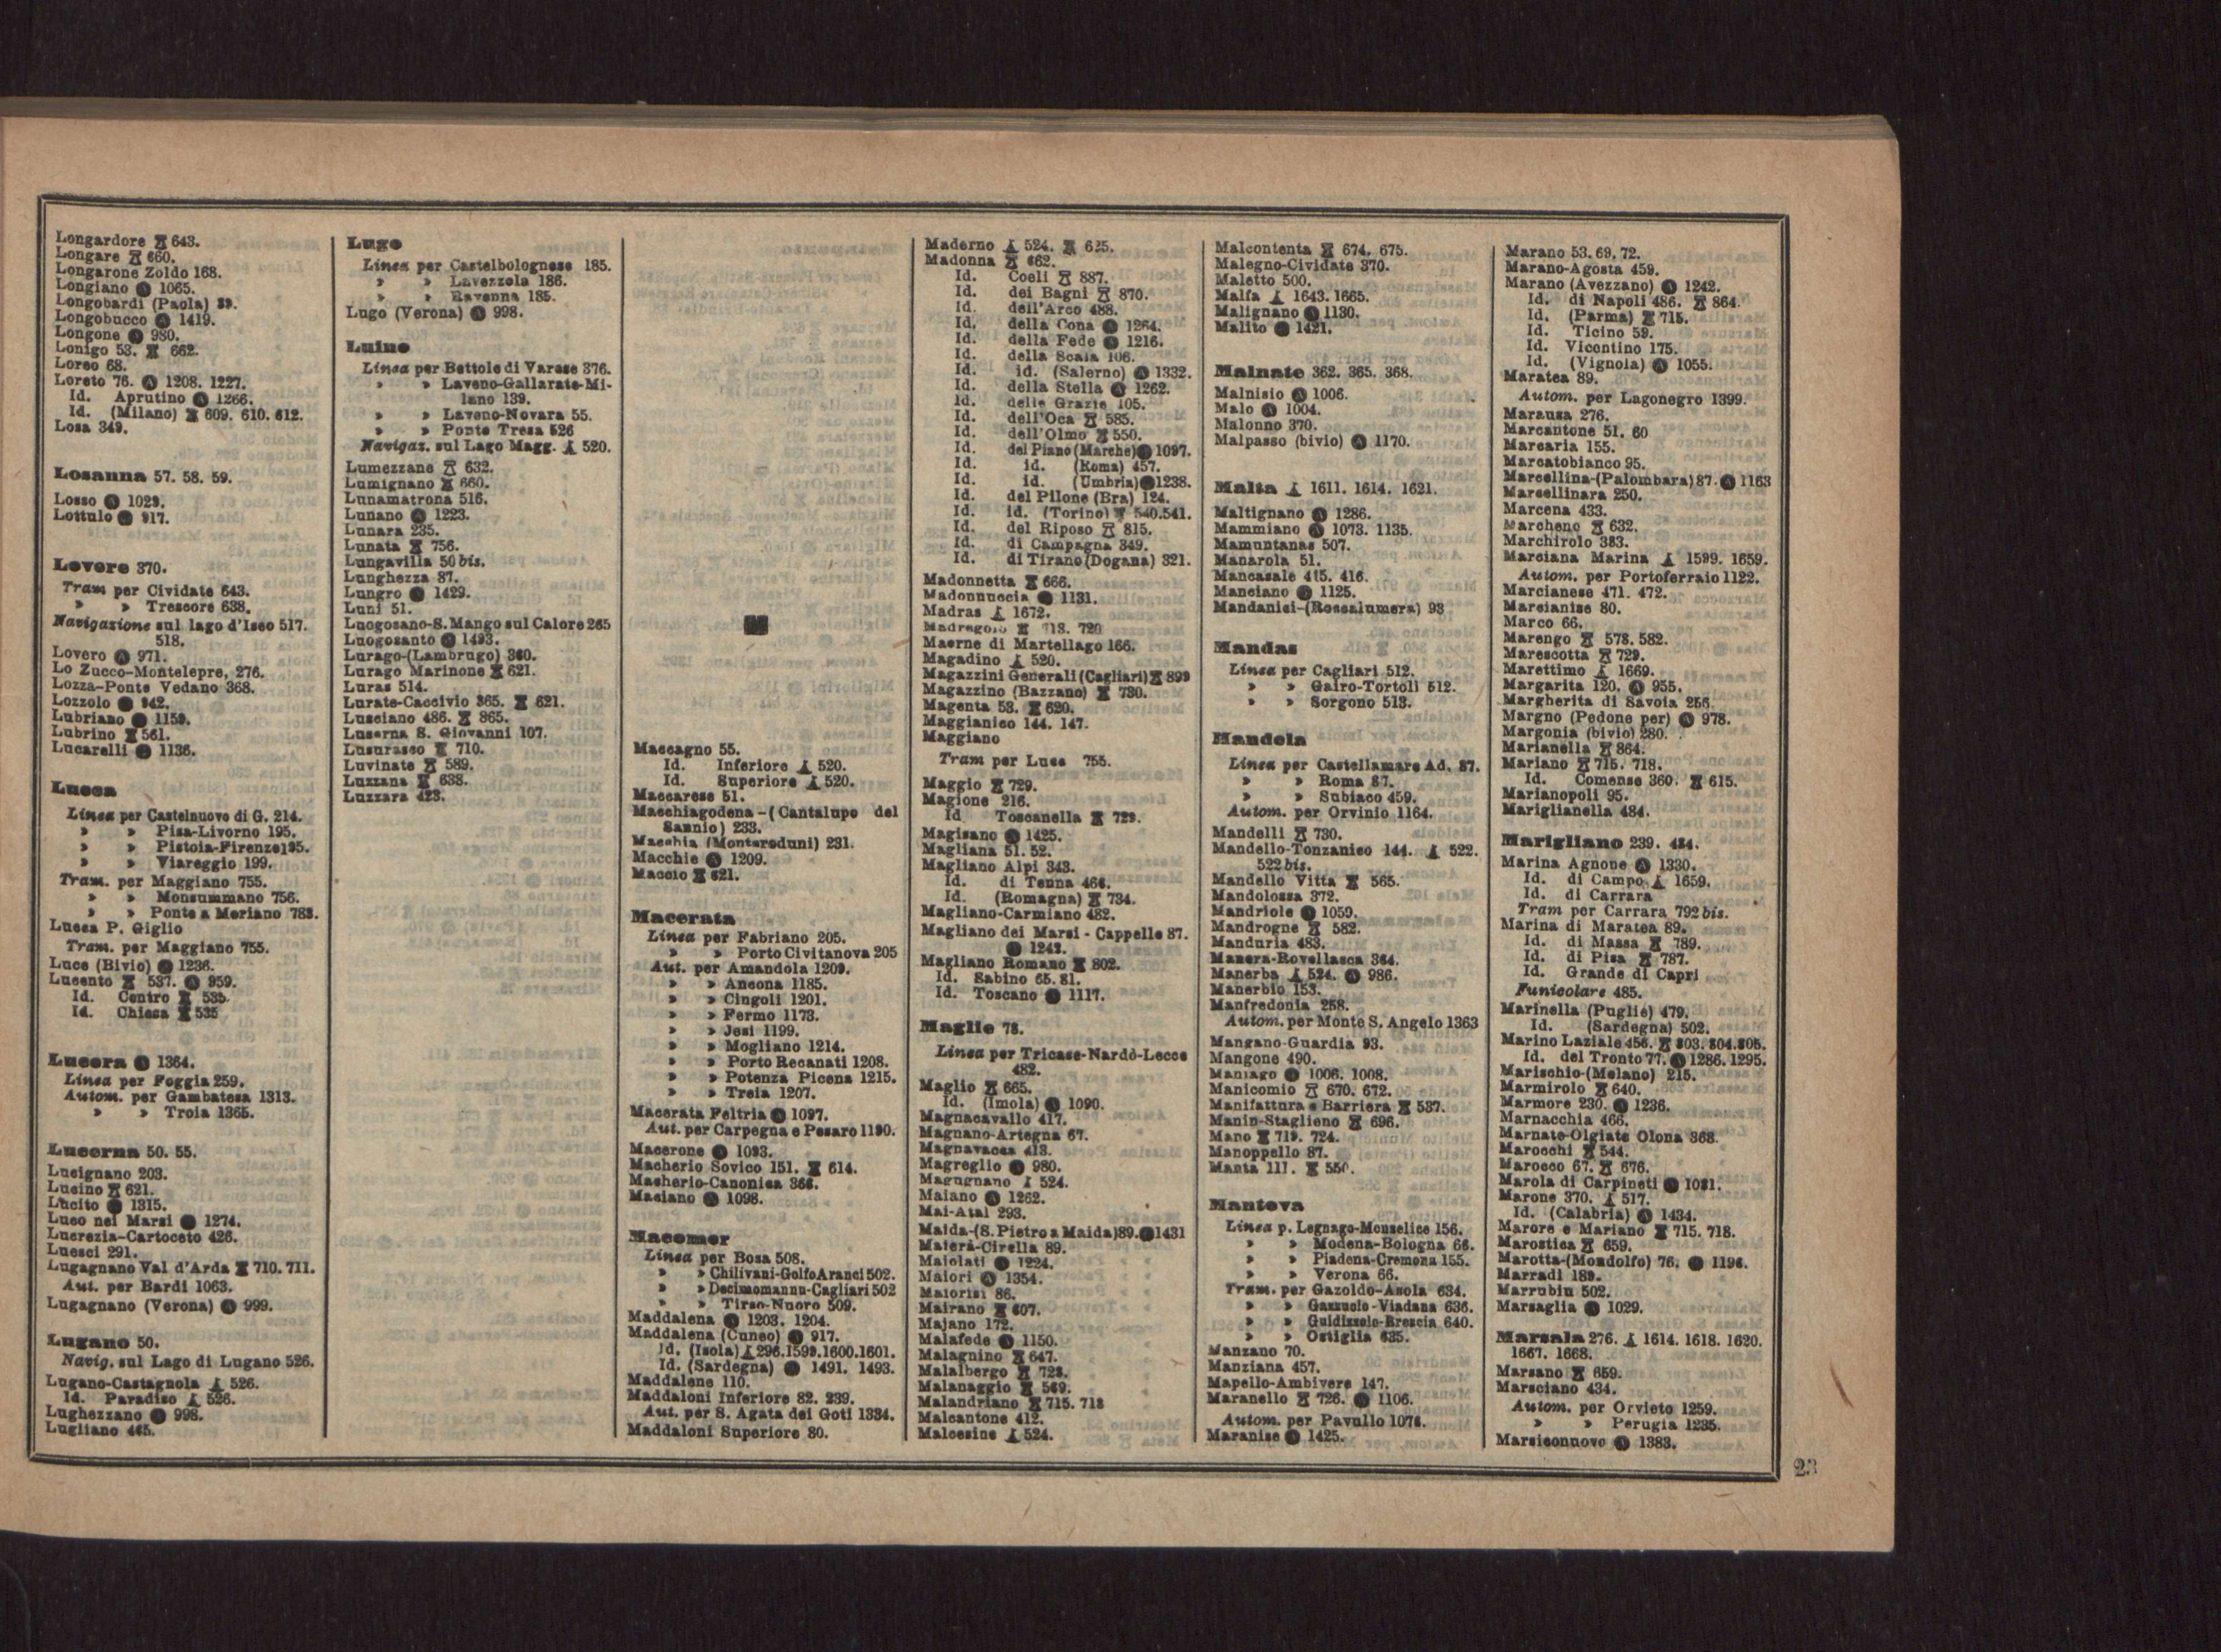 Longardore 643.
Longare 660.
Longarone Zoldo 168.
Longiano Ⓐ 1065.
Longobardi (Paola) 89.
Longobucco Ⓐ 1419.
Longone Ⓐ 980.
Lonigo 53. 662.
Loreo 68.
Loreto 76. Ⓐ 1208. 1227.
Id. Aprutino Ⓐ 1266.
Id. (Milano) 609. 610. 612.
Losa 349.
Losanna 57. 58. 59.
Losso Ⓐ 1029.
Lottulo Ⓐ 917.
Lovere 370.
Tram per Cividate 643.
» » Trescore 638.
Navigazione sul lago d'Iseo 517.
518.
Lovero Ⓐ 971.
Lo Zucco-Montelepre, 276.
Lozza-Ponte Vedano 368.
Lozzolo Ⓐ 942.
Lubriano Ⓐ 1159.
Lubrino 561.
Lucarelli Ⓐ 1136.
Lucca
Linea per Castelnuovo di G. 214.
» » Pisa-Livorno 195.
» » Pistoia-Firenze 195.
» » Viareggio 199.
Tram. per Maggiano 755.
» » Monsummano 756.
» » Ponte a Moriano 783.
Lucca P. Giglio
Tram. per Maggiano 755.
Luce (Bivio) Ⓐ 1236.
Lucento 537. Ⓐ 959.
Id. Centro 535
Id. Chiesa 535
Lucera Ⓐ 1364.
Linea per Foggia 259.
Autom. per Gambatesa 1313.
» » Troia 1365.
Lucerna 50. 55.
Lucignano 203.
Lucino 621.
Lucito Ⓐ 1315.
Luco nei Marsi Ⓐ 1274.
Lucrezia-Cartoceto 426.
Luesci 291.
Lugagnano Val d'Arda 710. 711.
Aut. per Bardi 1063.
Lugagnano (Verona) Ⓐ 999.
Lugano 50.
Navig. sul Lago di Lugano 526.
Lugano-Castagnola 526.
Id. Paradiso 526.
Lughezzano Ⓐ 998.
Lugliano 465.
Lugo
Linea per Castelbolognese 185.
» » Lavezzola 186.
» » Ravenna 185.
Lugo (Verona) Ⓐ 998.
Luino
Linea per Bettole di Varese 376.
» » Laveno-Gallarate-Mi-
lano 139.
» » Laveno-Novara 55.
» » Ponte Tresa 526
Navigaz. sul Lago Magg. 520.
Lumezzane 632.
Lumignano 660.
Lunamatrona 516.
Lunano Ⓐ 1223.
Lunara 235.
Lunata 756.
Lungavilla 50 bis.
Lunghezza 87.
Lungro Ⓐ 1429.
Luni 51.
Luogosano-S. Mango sul Calore 265
Luogosanto Ⓐ 1493.
Lurago-(Lambrugo) 360.
Lurago Marinone 621.
Luras 514.
Lurate-Caccivio 365. 621.
Lusciano 486. 865.
Luserna S. Giovanni 107.
Lusurasco 710.
Luvinate 589.
Luzzana 638.
Luzzara 423.
M
Maccagno 55.
Id. Inferiore 520.
Id. Superiore 520.
Maccarese 51.
Macchiagodena-(Cantalupo del
Sannio) 233.
Macchia (Monteroduni) 231.
Macchie Ⓐ 1209.
Maccio 621.
Macerata
Linea per Fabriano 205.
» » Porto Civitanova 205
Aut. per Amandola 1209.
» » Ancona 1185.
» » Cingoli 1201.
» » Fermo 1173.
» » Jesi 1199.
» » Mogliano 1214.
» » Porto Recanati 1208.
» » Potenza Picena 1215.
» » Treia 1207.
Macerata Feltria Ⓐ 1097.
Aut. per Carpegna e Pesaro 1190.
Macerone Ⓐ 1093.
Macherio Sovico 151. 614.
Macherio-Canonica 366.
Maciano Ⓐ 1098.
Macomer
Linea per Bosa 508.
» » Chilivani-Golfo Aranci 502.
» » Decimomannu-Cagliari 502
» » Tirso-Nuoro 509.
Maddalena Ⓐ 1203. 1204.
Maddalena (Cuneo) Ⓐ 917.
Id. (Isola) 296. 1599. 1600. 1601.
Id. (Sardegna) Ⓐ 1491. 1493.
Maddalene 110.
Maddaloni Inferiore 82. 239.
Aut. per S. Agata dei Goti 1334.
Maddaloni Superiore 80.
Maderno 524. 625.
Madonna 662.
Id. Coeli 887.
Id. dei Bagni 870.
Id. dell'Arco 488.
Id. della Cona Ⓐ 1264.
Id. della Fede Ⓐ 1216.
Id. della Scala 106.
Id. id. (Salerno) Ⓐ 1332.
Id. della Stella Ⓐ 1262.
Id. delle Grazie 105.
Id. dell'Oca 585.
Id. dell'Olmo 550.
Id. del Piano (Marche) Ⓐ 1097.
Id. id. (Roma) 457.
Id. id. (Umbria) Ⓐ 1238.
Id. del Pilone (Bra) 124.
Id. id. (Torino) 540.541.
Id. del Riposo 815.
Id. di Campagna 349.
Id. di Tirano (Dogana) 321.
Madonnetta 666.
Madonnuccia Ⓐ 1131.
Madras 1672.
Madregolo 718. 720
Maerne di Martellago 166.
Magadino 520.
Magazzini Generali (Cagliari) 899
Magazzino (Bazzano) 730.
Magenta 53. 620.
Maggianico 144. 147.
Maggiano
Tram per Lucca 755.
Maggio 729.
Magione 216.
Id Toscanella 729.
Magisano Ⓐ 1425.
Magliana 51. 52.
Magliano Alpi 343.
Id. di Tenna 466.
Id. (Romagna) 734.
Magliano-Carmiano 482.
Magliano dei Marsi - Cappelle 87.
Ⓐ 1243.
Magliano Romano 802.
Id. Sabino 65. 81.
Id. Toscano Ⓐ 1117.
Maglie 78.
Linea per Tricase-Nardò-Lecce
482.
Maglio 665.
Id. (Imola) Ⓐ 1090.
Magnacavallo 417.
Magnano-Artegna 67.
Magnavacca 413.
Magreglio Ⓐ 980.
Magugnano 524.
Maiano Ⓐ 1262.
Mai-Atal 293.
Maida-(S. Pietro a Maida) 89. Ⓐ 1431
Maierà-Cirella 89.
Maiolati Ⓐ 1224.
Maiori Ⓐ 1354.
Maiorisi 86.
Mairano 607.
Majano 172.
Malafede Ⓐ 1150.
Malagnino 647.
Malalbergo 723.
Malanaggio 569.
Malandriano 715. 718
Malcantone 412.
Malcesine 524.
Malcontenta 674. 675.
Malegno-Cividate 370.
Maletto 500.
Malfa 1643. 1665.
Malignano Ⓐ 1130.
Malito Ⓐ 1421.
Malnate 362. 365. 368.
Malnisio Ⓐ 1006.
Malo Ⓐ 1004.
Malonno 370.
Malpasso (bivio) Ⓐ 1170.
Malta 1611. 1614. 1621.
Maltignano Ⓐ 1286.
Mammiano Ⓐ 1073. 1135.
Mamuntanas 507.
Manarola 51.
Mancasale 415. 416.
Manciano Ⓐ 1125.
Mandanici-(Roccalumera) 93
Mandas
Linea per Cagliari 512.
» » Gairo-Tortoli 512.
» » Sorgono 513.
Mandela
Linea per Castellamare Ad. 87.
» » Roma 87.
» » Subiaco 459.
Autom. per Orvinio 1164.
Mandelli 730.
Mandello-Tonzanico 144. 522.
522 bis.
Mandello Vitta 565.
Mandolossa 372.
Mandriole Ⓐ 1059.
Mandrogne 582.
Manduria 483.
Manera-Rovellasca 364.
Manerba 524. Ⓐ 986.
Manerbio 153.
Manfredonia 258.
Autom. per Monte S. Angelo 1363
Mangano-Guardia 93.
Mangone 490.
Maniago Ⓐ 1006. 1008.
Manicomio 670. 672.
Manifattura e Barriera 537.
Manin-Staglieno 696.
Mano 719. 724.
Manoppello 87.
Manta 111. 550.
Mantova
Linea p. Legnago-Monselice 156.
» » Modena-Bologna 66.
» » Piadena-Cremona 155.
» » Verona 66.
Tram. per Gazoldo-Asola 634.
» » Gazzuolo-Viadana 636.
» » Guidizzolo-Brescia 640.
» » Ostiglia 635.
Manzano 70.
Manziana 457.
Mapello-Ambivere 147.
Maranello 726. Ⓐ 1106.
Autom. per Pavullo 1076.
Maranise Ⓐ 1425.
Marano 53. 69. 72.
Marano-Agosta 459.
Marano (Avezzano) Ⓐ 1242.
Id. di Napoli 486. 864.
Id. (Parma) 715.
Id. Ticino 59.
Id. Vicentino 175.
Id. (Vignola) Ⓐ 1055.
Maratea 89.
Autom. per Lagonegro 1399.
Marausa 276.
Marcantone 51. 60
Marcaria 155.
Marcatobianco 95.
Marcellina-(Palombara) 87. Ⓐ 1163
Marcellinara 250.
Marcena 433.
Marcheno 632.
Marchirolo 383.
Marciana Marina 1599. 1659.
Autom. per Portoferraio 1122.
Marcianese 471. 472.
Marcianise 80.
Marco 66.
Marengo 578. 582.
Marescotta 729.
Marettimo 1669.
Margarita 120. Ⓐ 955.
Margherita di Savoia 256
Margno (Pedone per) Ⓐ 978.
Margonia (bivio) 280.
Marianella 864.
Mariano 715. 718.
Id. Comense 360. 615.
Marianopoli 95.
Mariglianella 484.
Marigliano 239. 484.
Marina Agnone Ⓐ 1330.
Id. di Campo 1659.
Id. di Carrara
Tram per Carrara 792 bis.
Marina di Maratea 89.
Id. di Massa 789.
Id. di Pisa 787.
Id. Grande di Capri
Funicolare 485.
Marinella (Puglie) 479.
Id. (Sardegna) 502.
Marino Laziale 456. 803. 804. 805.
Id. del Tronto 77. Ⓐ 1286. 1295.
Marischio-(Melano) 215.
Marmirolo 640.
Marmore 230. Ⓐ 1236.
Marnacchia 466.
Marnate-Olgiate Olona 368.
Marocchi 544.
Marocco 67. 676.
Marola di Carpineti Ⓐ 1081.
Marone 370. 517.
Id. (Calabria) Ⓐ 1434.
Marore e Mariano 715. 718.
Marostica 659.
Marotta-(Mondolfo) 76. Ⓐ 1196.
Marradi 189.
Marrubiu 502.
Marsaglia Ⓐ 1029.
Marsala 276. 1614. 1618. 1620.
1667. 1668.
Marsano 659.
Marsciano 434.
Autom. per Orvieto 1259.
» » Perugia 1235.
Marsiconuovo Ⓐ 1383.
23